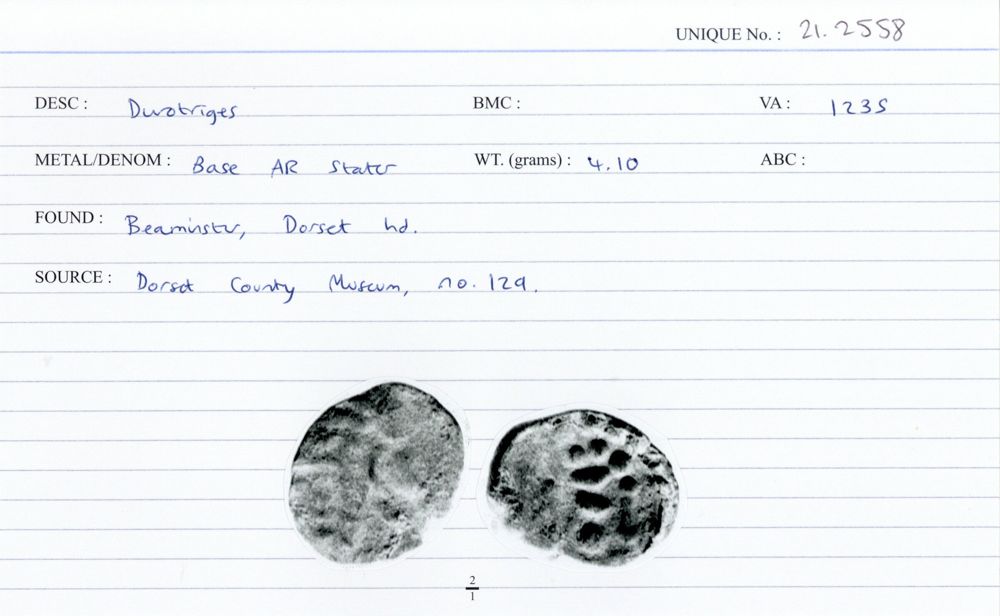 UNIQUE No. : 21.2558
DESC : Durotriges BMC : VA : 1235
METAL/DENOM : Base AR Stater WT. (grams) : 4.10 ABC :
FOUND : Beaminster, Dorset hd.
SOURCE : Dorset County Museum, no. 129.
2
1